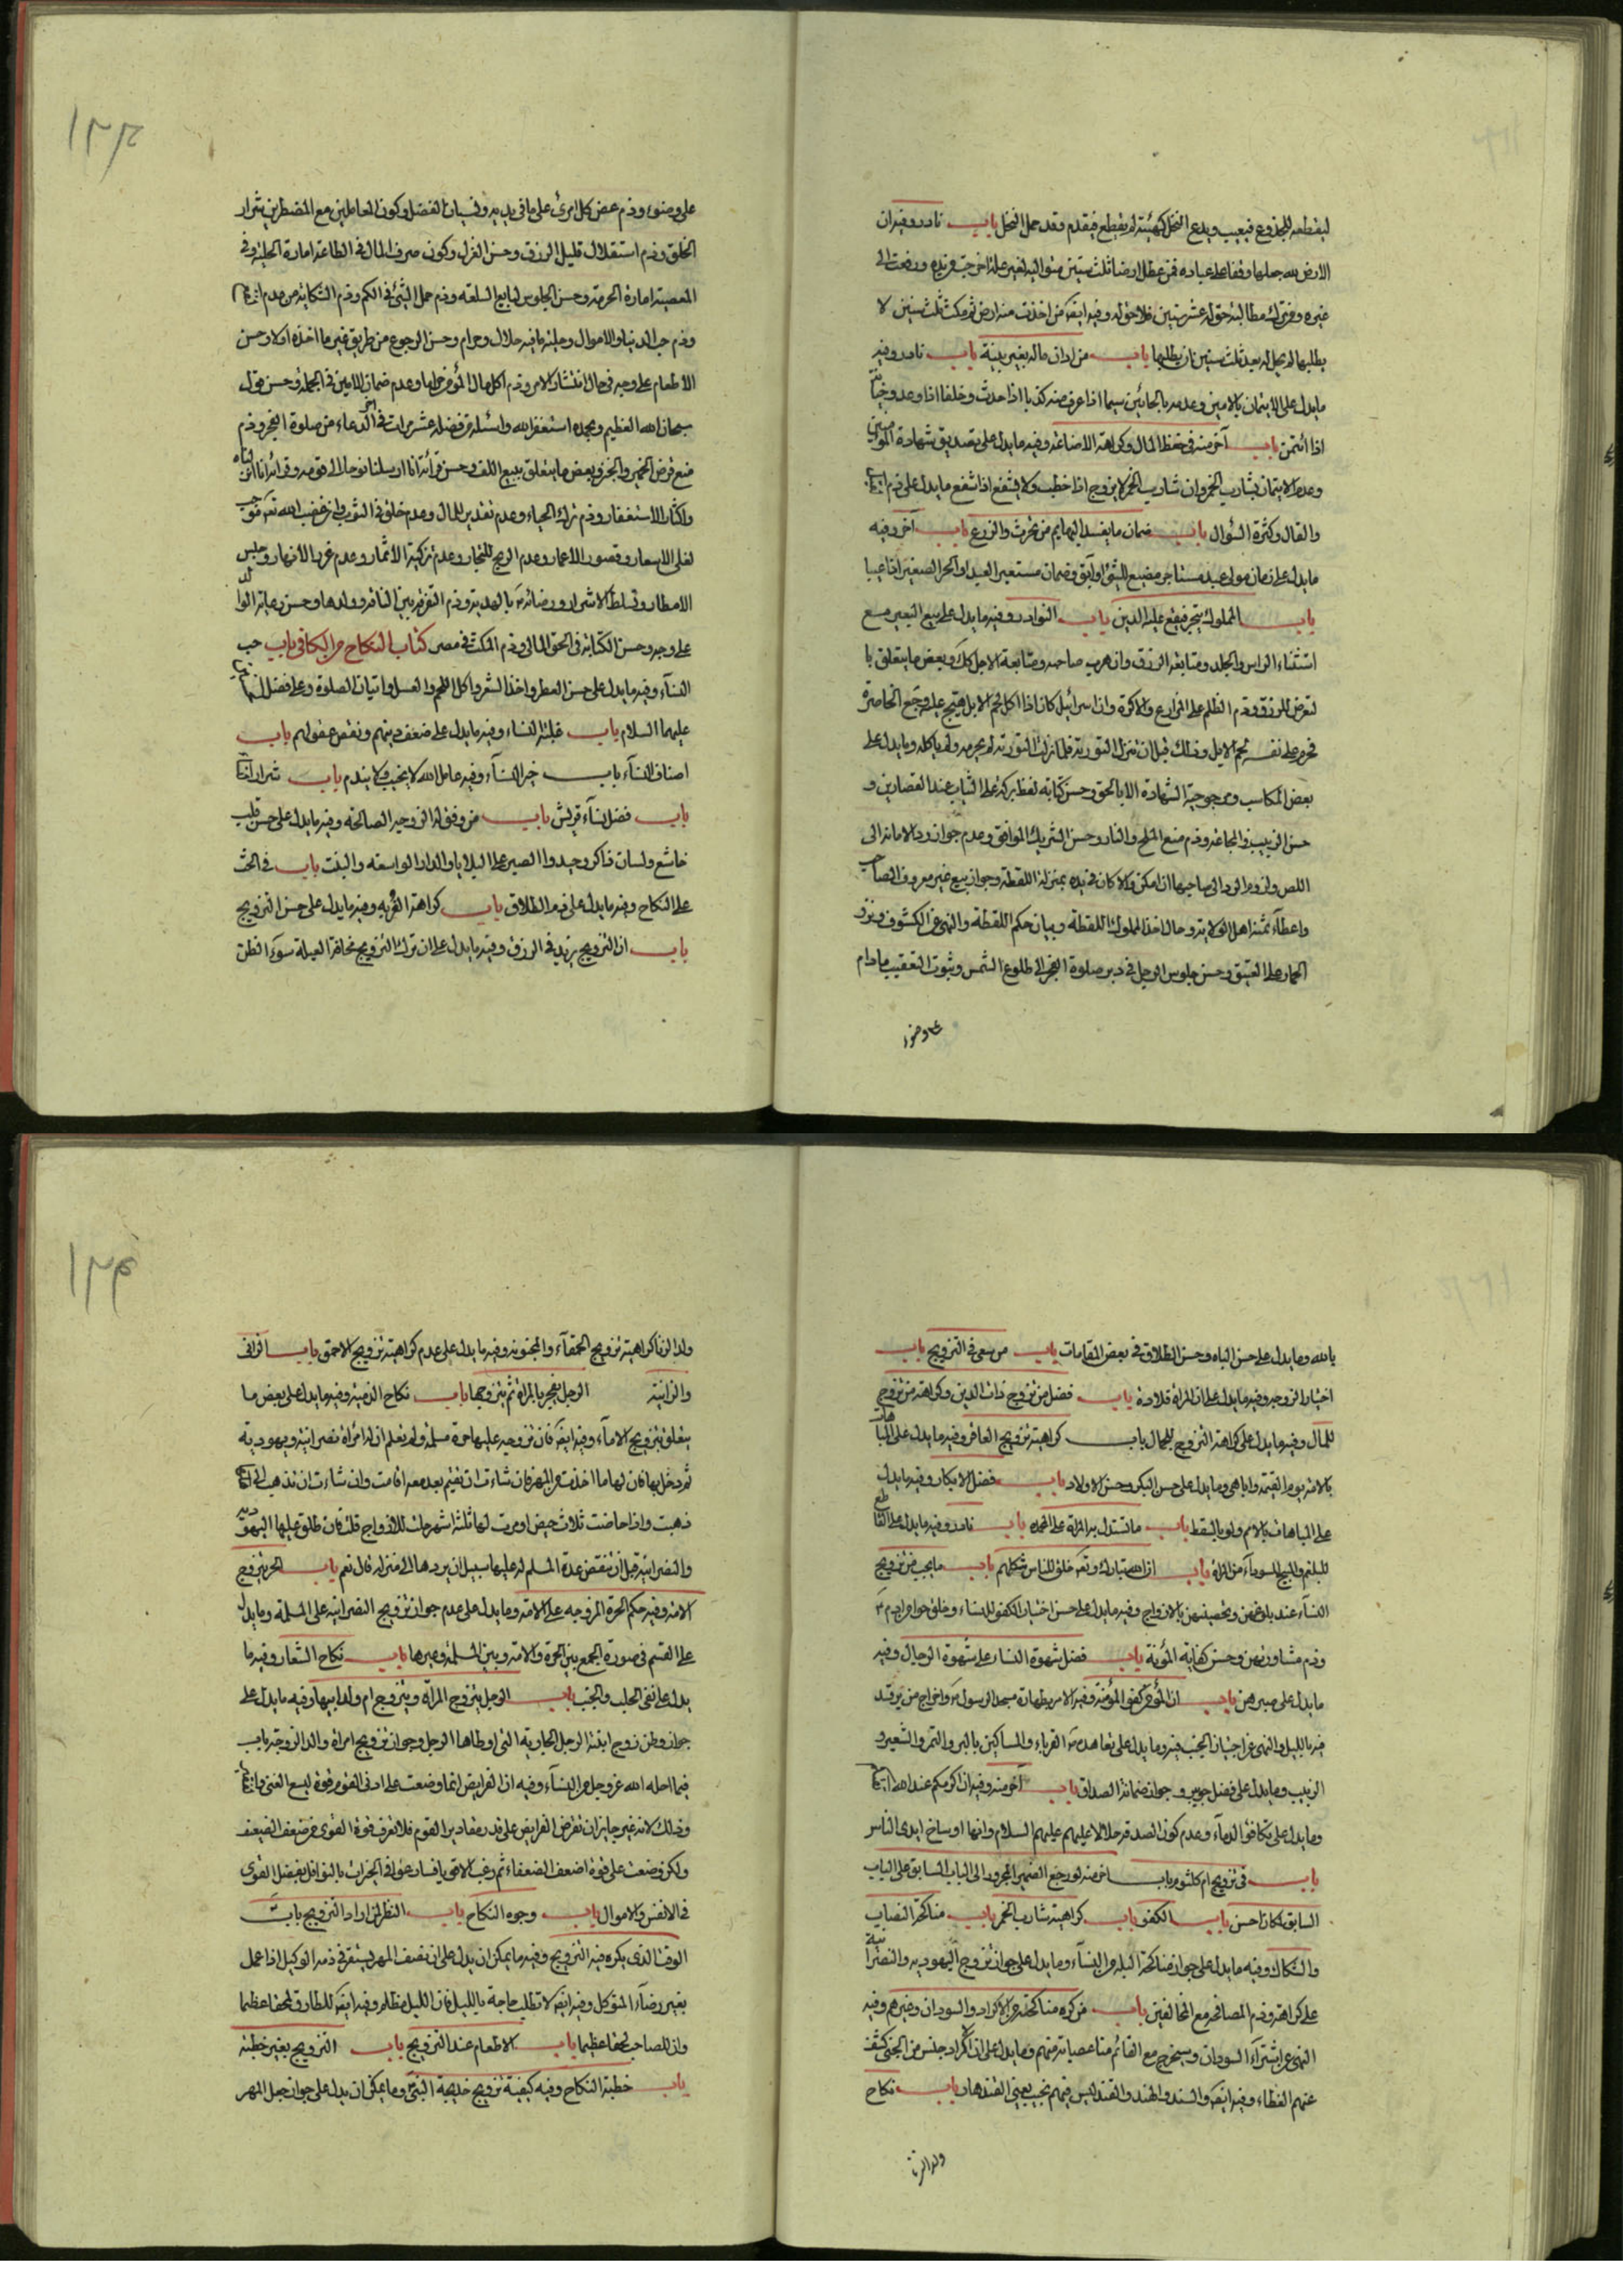 ليقطعه للجذوع فيغيب ويدع النخل كهيئته لم يقطع فيقدم وقد حمل النخل باب نادر وفيه ان
الارض لله جعلها وقفا على عباده فمن عطل ارضا ثلث سنين متوالية لغير علة اخرجت من يده ودفعت الى
غيره ومن ترك مطالبة حق له عشر سنين فلا حق له وفيه ايضا من اخذت منه ارض ثم مكث ثلث سنين لا
يطلبها لم يحل له بعد ثلث سنين ان يطلبها باب من ادان ماله بغير بينة باب نادر وفيه
ما يدل على الايتمان بالامين وعدمه بالخائنين سيما اذا عرف منه كذبا اذا حدث وخلفا اذا وعد وخيانة
اذا ائتمن باب آخر منه في حفظ المال وكراهة الاضاعة وفيه ما يدل على تصديق شهادة المؤمنين
وعدم الايتمان بشارب الخمر وان شارب الخمر لا يزوج اذا خطب ولا يشفع اذا شفع ما يدل على ذم
والقال وكثرة السؤال باب ضمان ما يفسد البهايم من الحرث والزرع باب آخر وفيه
ما يدل على ضمان مولى عبد مستاجر مضيع للشئ او آبق وضمان مستعير العبد او الحر الصغير اذا عيبا
باب المملوك يتجر فيقع عليه الدين باب النوادر وفيه ما يدل على بيع البعير مع
استثناء الراس والجلد ومتابعة الرزق وان هرب صاحبه ومتابعة الاجل كذلك وبعض ما يتعلق با
لتعرض للرزق وذم الظلم على الزارع والاكرة وان اسرائيل كان اذا اكل لحم الابل هيج عليه وجع الخاصرة
فحرم على نفسه لحم الابل وذلك قبل ان تنزل التورية فلما نزلت التورية لم يحرمه ولم ياكله وما يدل على
بعض المكاسب ومرجوحية الشهادة الا بالحق وحسن كتابة لفظ بركة على الثياب عند القصارين و
حسن الزبيب في المجاعة وذم منع الملح والنار وحسن الشريك الموافق وعدم جواز رد الامانة الى
اللص ولزوم الرد الى صاحبها ان امكن والا كان في يده بمنزلة اللقطة وجواز بيع غير معروف الصاحب
واعطاء ثمنه اهل الولاية وحال اخذ المملوك اللقطة وبيان حكم اللقطة والنهي عن الكشوف ونزو
الحمار على العتيق وحسن جلوس الرجل في دبر صلوة الفجر الى طلوع الشمس وثبوت التعقيب ما دام
على وضوء
١٢٣
على وضوء وذم عض كل امرئ على ما في يديه ونسيان الفضل وكون المعاملين مع المضطرين شرار
الخلق وذم استقلال قليل الرزق وحسن الغزل وكون صرف المال في الطاعة امارة الحلية وفي
المعصية امارة الحرمة وحسن الجلوس لبايع السلعة وذم حمل الشئ في الكم وذم الشكاية من عدم
وذم حب الدنيا والاموال وحلية ما فيه حلال وحرام وحسن الرجوع من طريق غير ما اخذه اولا وحسن
الاطعام على وجه في حال انتشار الامر وذم اكل مال المؤمن حراما وعدم ضمان الامين في الجملة وحسن قول
سبحان الله العظيم وبحمده استغفر الله واسئله من فضله عشر مرات في آخر الدعاء من صلوة الفجر وذم
منع قرض الخمير والخبز وبعض ما يتعلق ببيع اللقف وحسن قرائة انا ارسلنا نوحا الى قومه وقرائة انا انزلناه
واكثار الاستغفار وذم ترك الحياء وعدم تقدير المال وعدم خلق في الثور وان غضب الله تع موجب
لغلى الاسعار وقصور الاعمار وعدم الربح للتجار وعدم تزكية الاثمار وعدم غزر الانهار وحبس
الامطار وتسلط الاشرار ورضائه تع بالهدية وذم التفرقة بين الناقة وولدها وحسن رعاية الوالد
على وجه وحسن الكتابة في الحق المالي وذم المكث في مصر كتاب النكاح من الكافي باب حب
النسآء وفيه ما يدل على حسن العطر واخذ الشعر واكل اللحم والعسل واتيان الصلوة وعلى فضل
عليهما السلام باب غلبة النساء وفيه ما يدل على ضعف دينهم ونقص عقولهم باب
اصناف النسآء باب خير النسآء وفيه عامل الله لا يخيب ولا يندم باب شرار
باب فضل نسآء قريش باب من وفق له الزوجة الصالحة وفيه ما يدل على حسن قلب
خاشع ولسان ذاكر وجسد الصبر على البلايا والدار الواسعة والبنت باب في الحث
على النكاح وفيه ما يدل على ذم الطلاق باب كراهة العزبة وفيه ما يدل على حسن التزويج
باب ان التزويج يزيد في الرزق وفيه ما يدل على ان ترك التزويج مخافة العيلة سوء الظن
بالله وما يدل على حسن الباه وحسن الطلاق في بعض المقامات باب من سعى في التزويج باب
اختيار الزوجة وفيه ما يدل على ان المراة قلادة باب فضل من تزوج ذات الدين وكراهة من تزوج
للمال وفيه ما يدل على كراهة التزوج للجمال باب كراهية تزويج العاقر وفيه ما يدل على المباهات
بالامة يوم القيمة واباهى وما يدل على حسن البكر وحسن الاولاد باب فضل الابكار وفيه ما يدل
على المباهات بالامم ولو بالسقط باب ما تستدل به المراة على المحمدة باب نادر وفيه ما يدل على القاطع
للبلغم والمهيج للسوداء من المراة باب ان الله تبارك وتع خلق للناس شكلهم باب ما يجب من تزويج
النسآء عند بلوغهن وتحصينهن بالازواج وفيه ما يدل على حسن اختيار الكفو للنساء وخلق حوا من ادم ع
وذم مشاورتهن وحسن كفاية المؤنة باب فضل شهوة النساء على شهوة الرجال وفيه
ما يدل على صبرهن باب ان المؤمن كفو المؤمنة وفيه الامر بطهارة مسجد الرسول ص واخراج من يرقد
فيه بالليل والنهي عن اجتياز الجنب فيه وما يدل على تعاهده ص الغرباء والمساكين بالبر والتمر والشعير و
الزبيب وما يدل على فضل جويبر وجواز ضمانة الصداق باب آخر منه وفيه ان اكرمكم عند الله اتقاكم
وما يدل على تكافؤ الدماء وعدم كون الصدقة حلالا عليهم عليهم السلام وانها اوساخ ايدى الناس
باب في تزويج ام كلثوم باب آخر منه لو رجع الضمير المجرور الى الباب السابق على الباب
السابق لكان احسن باب الكفو باب كراهية شارب الخمر باب مناكحة النصاب
والشكاك وفيه ما يدل على جواز مناكحة البله من النسآء وما يدل على جواز تزوج اليهودية والنصرانية
على كراهة وذم المصافحة مع المخالفين باب من كره مناكحته من الاكراد والسودان وغيرهم وفيه
النهي عن اشتراء السودان وسيخرج مع القائم منا عصابة منهم وما يدل على ان الاكراد جنس من الجن كشف
عنهم الغطاء وفيه ايضا والسند والهند والقند ليس فيهم نجيب يعني القندهار باب نكاح
ولد الزنا
١٢٤
ولد الزنا كراهية تزويج الحمقآء والمجنونة وفيه ما يدل على عدم كراهية تزويج الاحمق باب الزاني
والزانية الرجل يفجر بالمراة ثم يتزوجها باب نكاح الذمية وفيه ما يدل على بعض ما
يتعلق بتزويج الامآء وفيه ايضا فان تزوج عليها حرة مسلمة ولم تعلم ان له امراة نصرانية ويهودية
ثم دخل بها فان لها ما اخذت من المهر فان شاءت ان تقيم بعد معه اقامت وان شاءت ان تذهب الى اهلها
ذهبت واذا حاضت ثلاث حيض او مرت لها ثلثة اشهر حلت للازواج قلت فان طلق عليها اليهودية
والنصرانية قبل ان تنقضي عدة المسلمة له عليها سبيل ان يردها الى منزله قال نعم باب الحر يتزوج
الامة وفيه حكم الحرة المزوجة على الامة وما يدل على عدم جواز تزويج النصرانية على المسلمة وما يدل
على القسم في صورة الجمع بين الحرة والامة وبين المسلمة وغيرها باب نكاح الشغار وفيه ما
يدل على نفي الجلب والجنب باب الرجل يتزوج المراة ويتزوج ام ولد ابيها وفيه ما يدل على
جواز وطئ زوج ابنة الرجل الجارية التي اوطاها الرجل وجواز تزويج امراة والد الزوجة باب
فيما احله الله عز وجل من النسآء وفيه ان الفرايض انما وضعت على ادنى القوم قوة ليسع الغني
وذلك لانه غير جايز ان تفرض الفرايض على قدر مقادير القوم فلا تعرف قوة القوى من ضعف الضعيف
ولكن وضعت على قوة اضعف الضعفاء ثم رغب الاقوياء فسارعوا في الخيرات بالنوافل بفضل القوى
في الانفس والاموال باب وجوه النكاح باب النظر لمن اراد التزويج باب
الوقت الذى يكره فيه التزويج وفيه ما يمكن ان يدل على ان نصف المهر يستقر في ذمة الوكيل اذا عمل
بغير رضاء الموكل وفيه ايضا لا تطلب حاجة بالليل فان الليل مظلم وفيه ايضا للطارق لحقا عظيما
وان للصاحب لحقا عظيما باب الاطعام عند التزويج باب التزويج بغير خطبة
باب خطبة النكاح وفيه كيفية تزويج خديجة النبي وما يمكن ان يدل على جواز جعل المهر